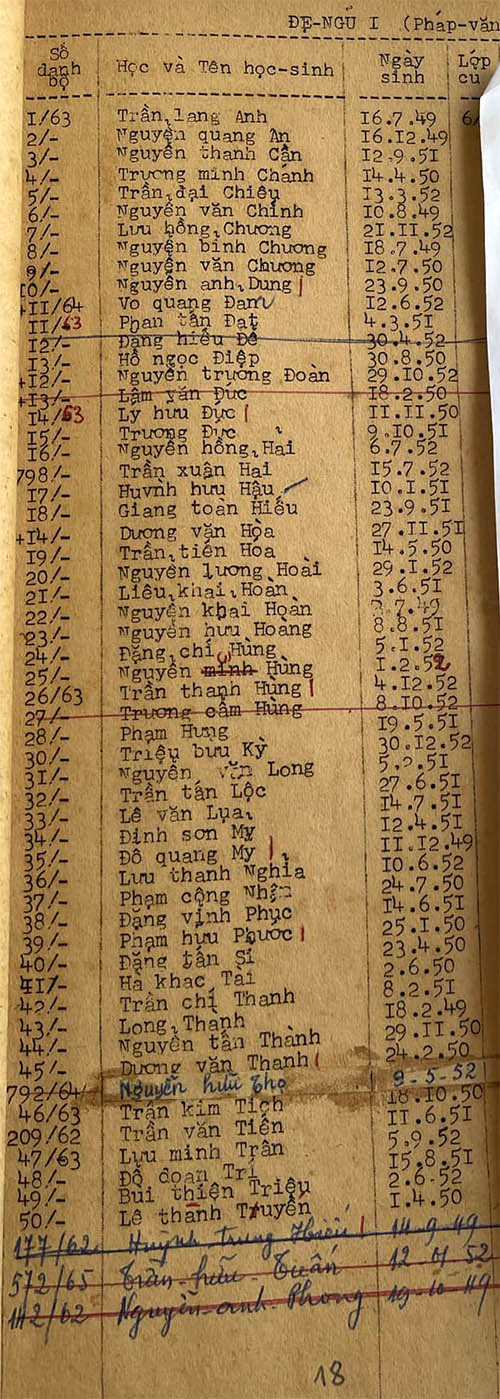 ĐỆ-NGŨ I (Pháp-văn
Số danh bộ Học và Tên học-sinh Ngày sinh Lớp cu
I/63 Trần lang Anh I6.7.49 6/
2/- Nguyễn quang Ân I6.I2.49
3/- Nguyễn thanh Cần I2.9.5I
4/- Trương minh Chánh I4.4.50
5/- Trần đại Chiêu I3.3.52
6/- Nguyễn văn Chính I0.8.49
7/- Lưu hồng Chương 2I.II.52
8/- Nguyễn bình Chương I8.7.49
9/- Nguyễn văn Chương I2.7.50
I0/- Nguyễn anh Dung 23.9.50
+II/64 Vo quang Đam I2.6.52
II/63 Phan tấn Đạt 4.3.5I
I2/- Đặng hiếu Đễ 30.4.52
I3/- Hồ ngọc Điệp 30.8.50
+I2/- Nguyễn trương Đoàn 29.I0.52
+I3/- Lâm văn Đức I8.2.50
I4/63 Lý hưu Đực II.II.50
I5/- Trương Đực 9.I0.5I
I6/- Nguyễn hồng Hai 6.7.52
798/- Trần xuân Hai I5.7.52
I7/- Huỳnh hưu Hậu I0.I.5I
I8/- Giang toàn Hiếu 23.9.5I
+I4/- Dương văn Hòa 27.II.5I
I9/- Trần tiến Hòa I4.5.50
20/- Nguyễn lương Hoài 29.I.52
2I/- Liêu khai Hoàn 3.6.5I
22/- Nguyễn khai Hoàn 7.49
23/- Nguyễn hưu Hoàng 8.8.5I
24/- Đặng chí Hùng 5.I.52
25/- Nguyễn minh Hùng I.2.52
26/63 Trần thanh Hùng 4.I2.52
27/- Trương cẩm Hùng 8.I0.52
28/- Phạm Hưng I9.5.5I
30/- Triệu bưu Kỳ 30.I2.52
3I/- Nguyễn văn Long 5. .5I
32/- Trần tấn Lộc 27.6.5I
33/- Lê văn Lụa I4.7.5I
34/- Đinh sơn My I2.4.5I
35/- Đỗ quang My II.I2.49
36/- Lưu thanh Nghĩa I0.6.52
37/- Phạm công Nhân 24.7.50
38/- Đặng vịnh Phục I4.6.5I
39/- Phạm hưu Phước 25.I.50
40/- Đặng tấn Sĩ 23.4.50
4I/- Hà khac Tài 2.6.50
42/- Trần chí Thanh 8.2.5I
43/- Long Thạnh I8.2.49
44/- Nguyễn tấn Thành 29.II.50
45/- Dương văn Thanh 24.2.50
792/64/ Nguyễn hữu Thọ 9-5-52
46/63 Trần kim Tích I8.I0.50
209/62 Trần văn Tiến II.6.5I
47/63 Lưu minh Trân 5.9.52
48/- Đỗ đoan Trí I5.8.5I
49/- Bùi thiện Triệu 2.6.52
50/- Lê thanh Truyền I.4.50
177/62 Huỳnh trung Hiếu 14-9-49
572/65 Trần hữu Tuấn 12 01 52
112/62 Nguyễn anh Phong 19-10-49
18